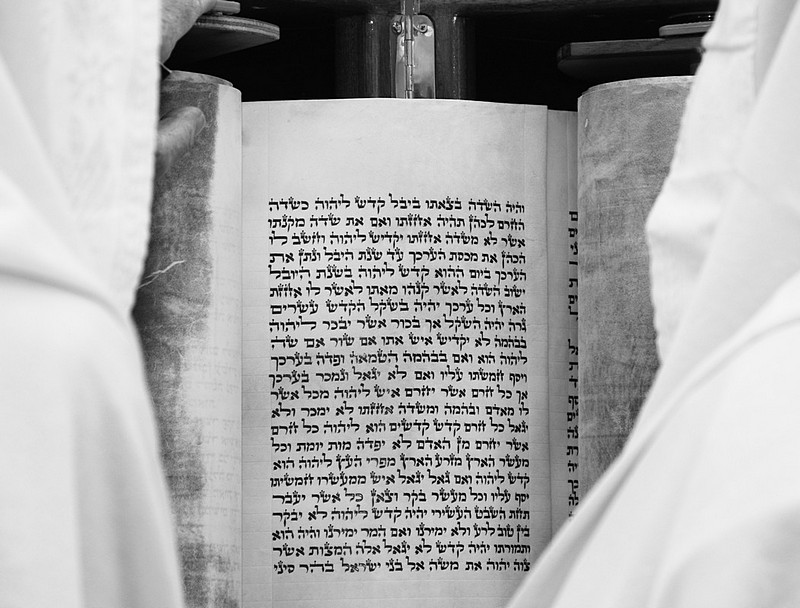 והיה השדה בצאתו ביבל קדש ליהוה כשדה
החרם לכהן תהיה אחזתו ואם את שדה מקנתו
אשר לא משדה אחזתו יקדיש ליהוה וחשב לו
הכהן את מכסת הערכך עד שנת היבל ונתן את
הערכך ביום ההוא קדש ליהוה בשנת היובל
ישוב השדה לאשר קנהו מאתו לאשר לו אחזת
הארץ וכל ערכך יהיה בשקל הקדש עשרים
גרה יהיה השקל אך בכור אשר יבכר ליהוה
בבהמה לא יקדיש איש אתו אם שור אם שה
ליהוה הוא ואם בבהמה הטמאה ופדה בערכך
ויסף חמשתו עליו ואם לא יגאל ונמכר בערכך
אך כל חרם אשר יחרם איש ליהוה מכל אשר
לו מאדם ובהמה ומשדה אחזתו לא ימכר ולא
יגאל כל חרם קדש קדשים הוא ליהוה כל חרם
אשר יחרם מן האדם לא יפדה מות יומת וכל
מעשר הארץ מזרע הארץ מפרי העץ ליהוה הוא
קדש ליהוה ואם גאל יגאל איש ממעשרו חמשיתו
יסף עליו וכל מעשר בקר וצאן כל אשר יעבר
תחת השבט העשירי יהיה קדש ליהוה לא יבקר
בין טוב לרע ולא ימירנו ואם המר ימירנו והיה הוא
ותמורתו יהיה קדש לא יגאל אלה המצות אשר
צוה יהוה את משה אל בני ישראל בהר סיני